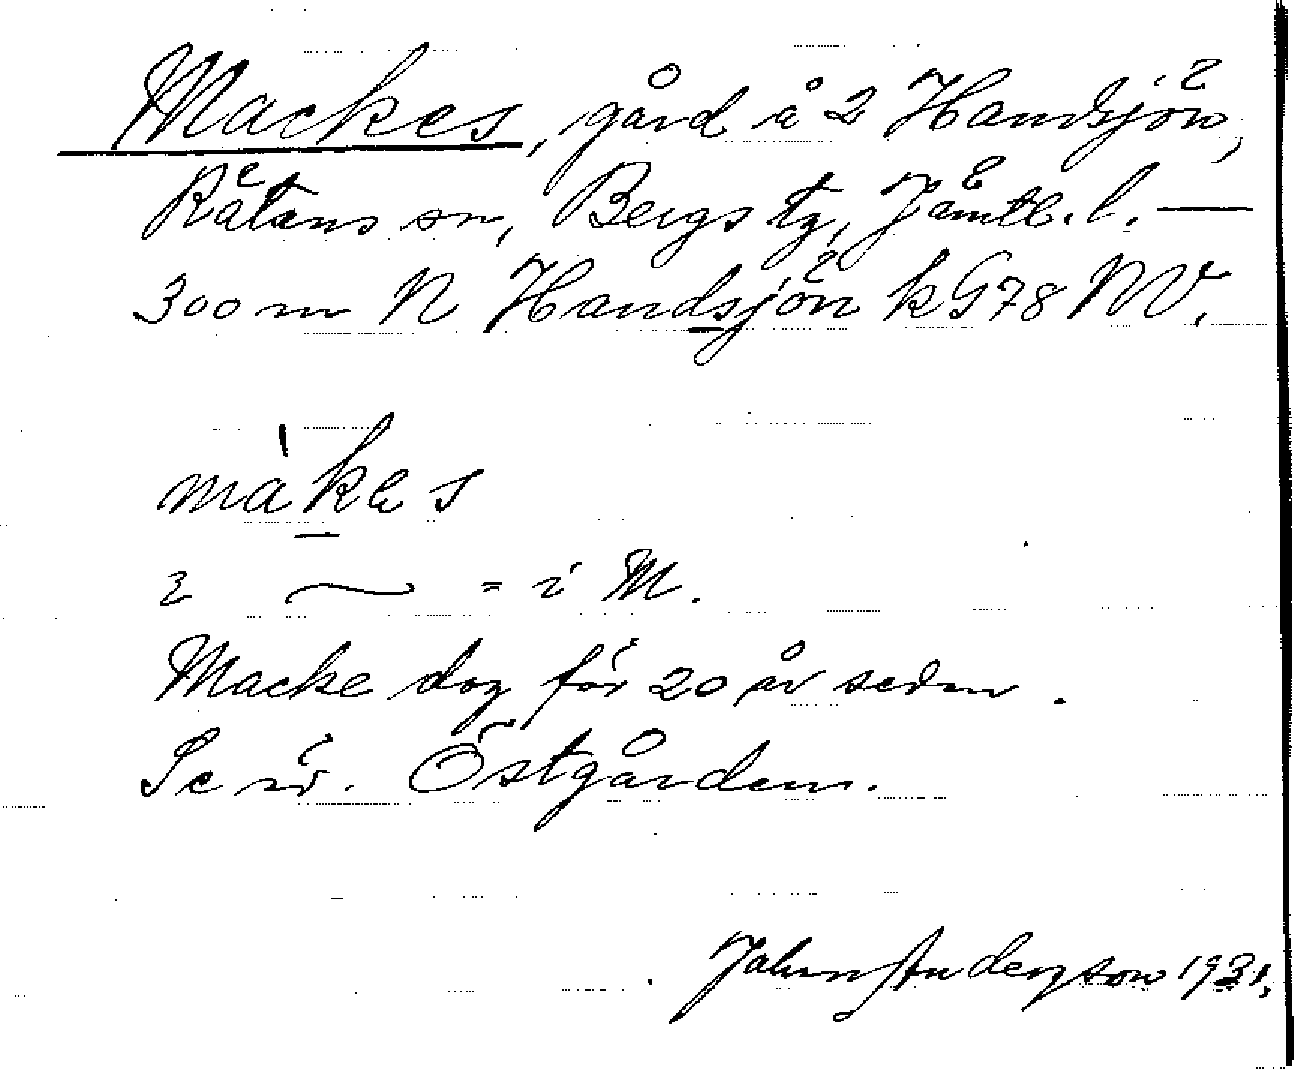 Mackes, gård å 2 Handsjön,
Rätans sn, Bergs tg, Jämtl. l. —
300 m N Handsjön kG78 NV.
màkes
i ~ = i M.
Macke dog för 20 år sedan.
Se vid. Östgården.
Jahn Anderzson 1931.